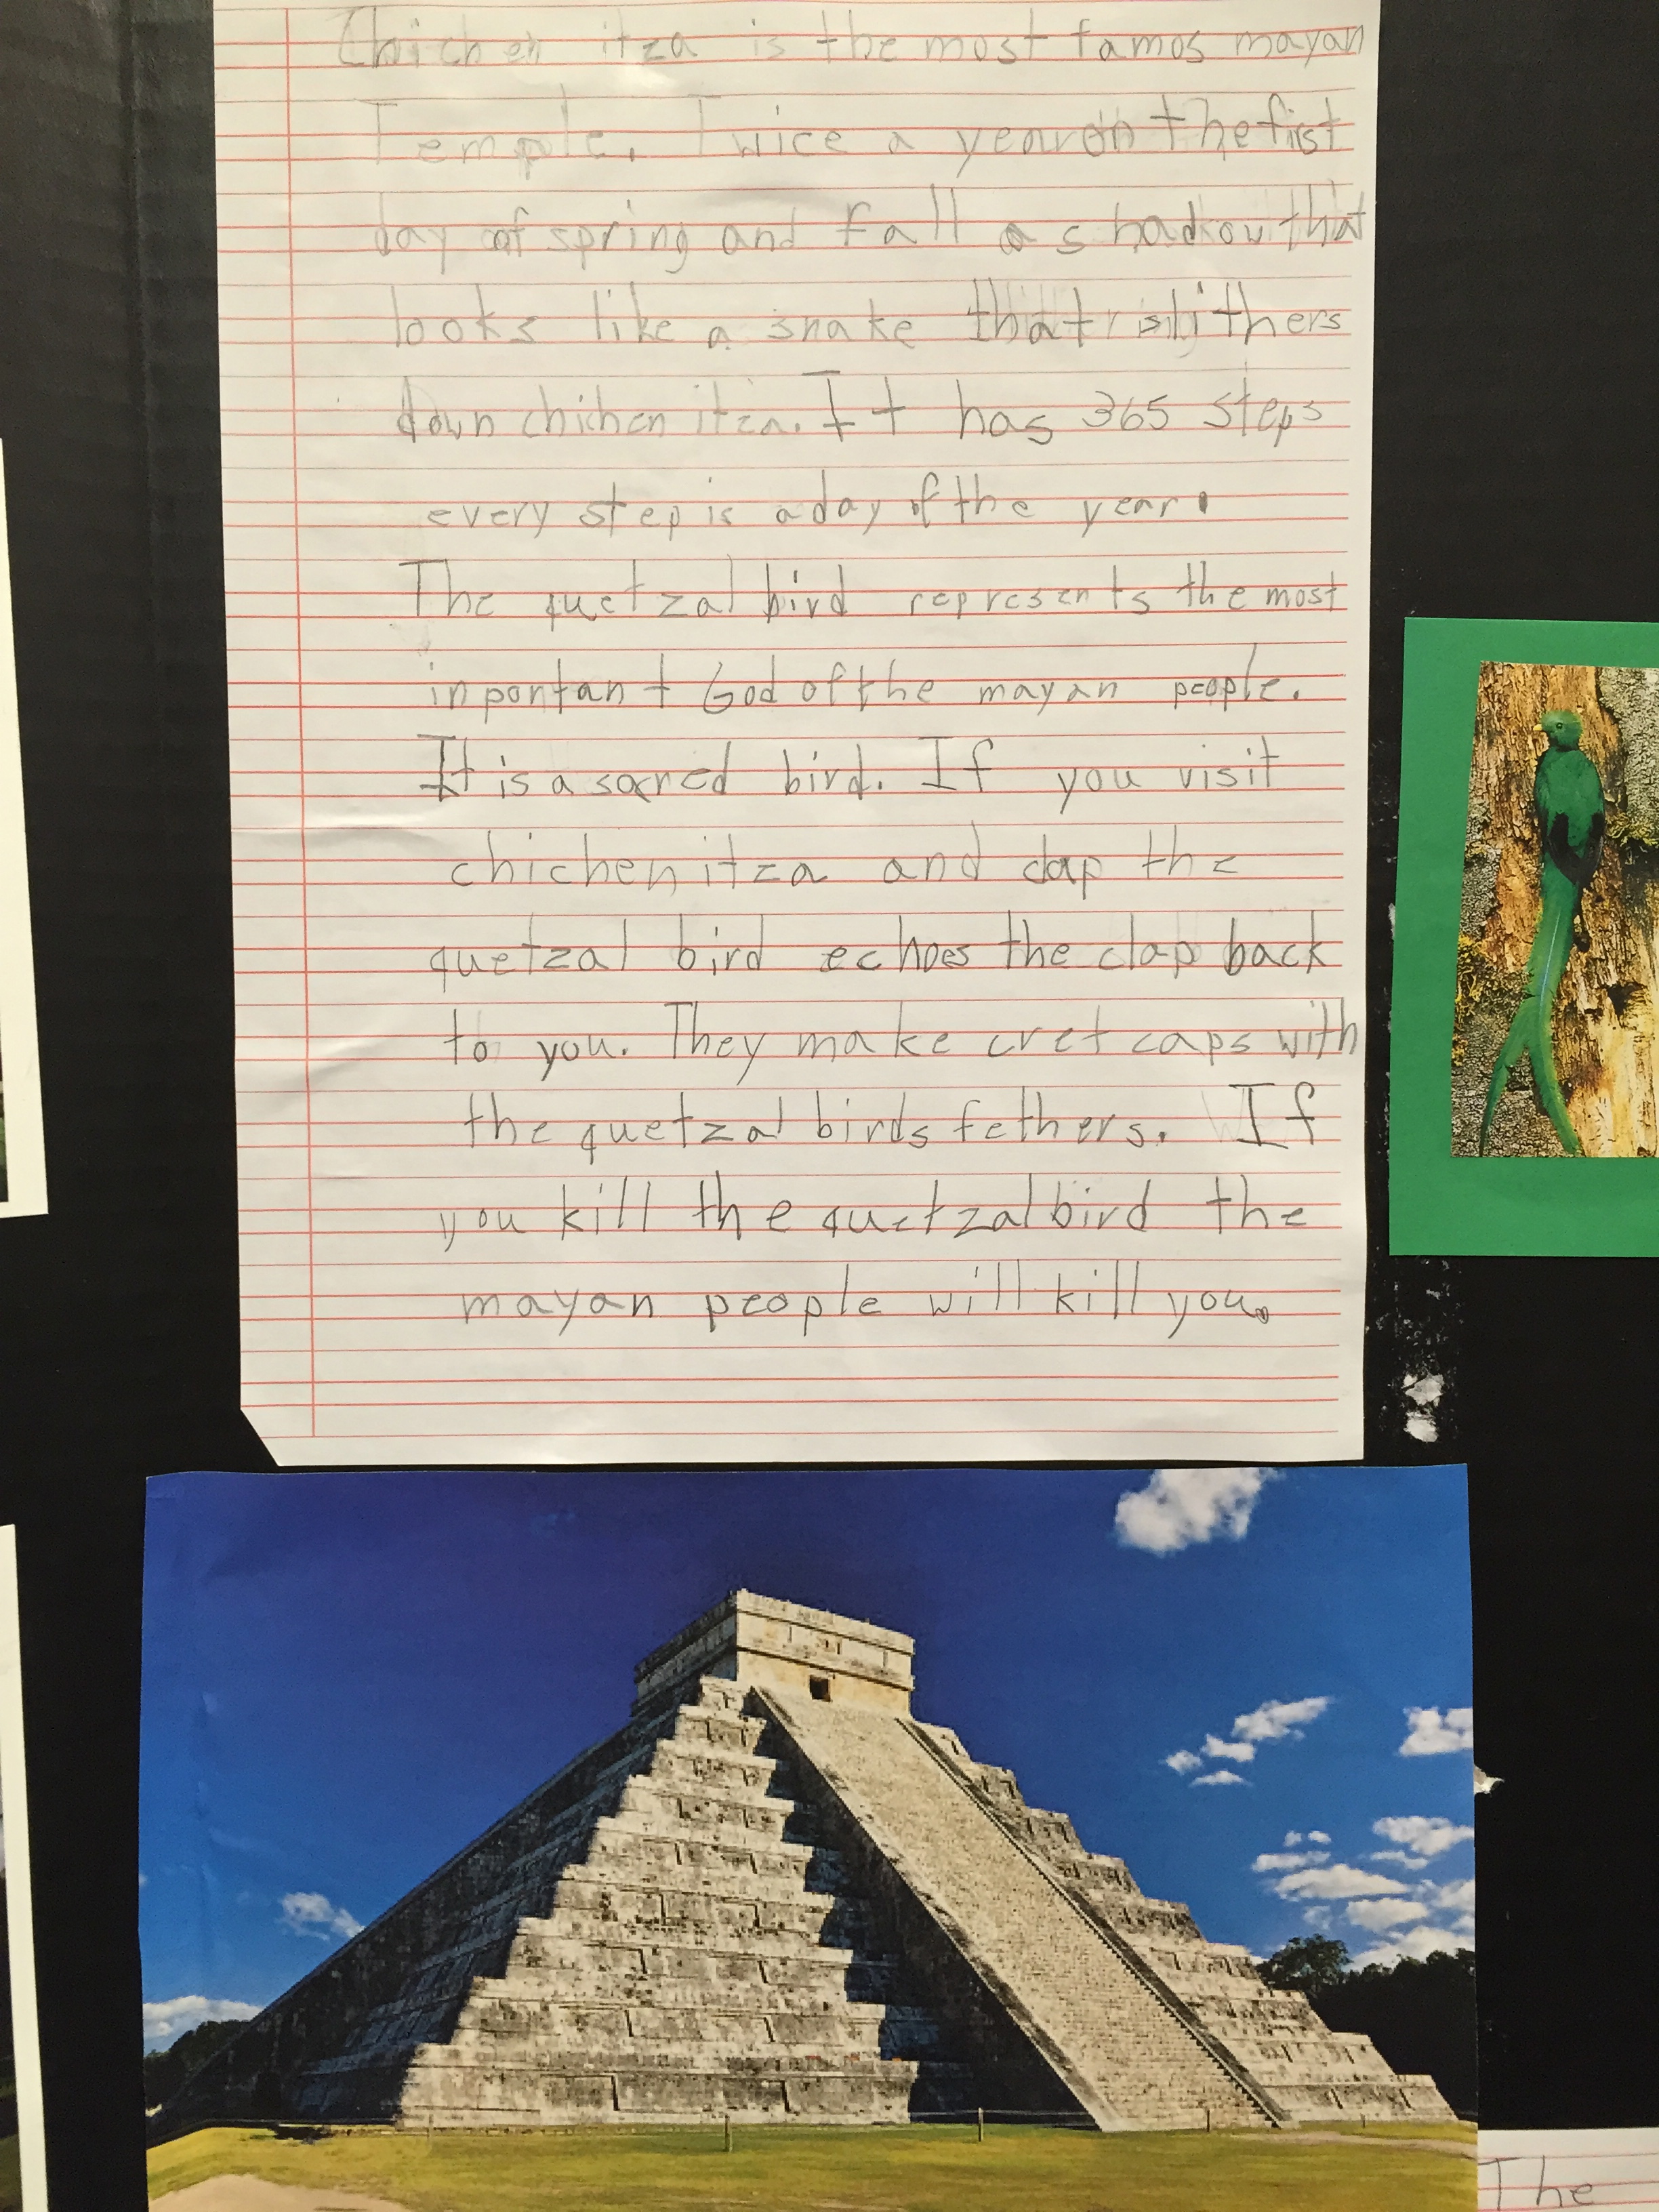 Chichen itza is the most famos mayan
Temple. Twice a year on the first
day of spring and fall a shadow that
looks like a snake that slithers
down chichen itza. It has 365 steps
every step is a day of the year.
The quetzal bird represents the most
inpontant God of the mayan people.
It is a sacred bird. If you visit
chichen itza and clap the
quetzal bird echoes the clap back
to you. They make cret caps with
the quetzal birds fethers. If
you kill the quetzal bird the
mayan people will kill you.
The